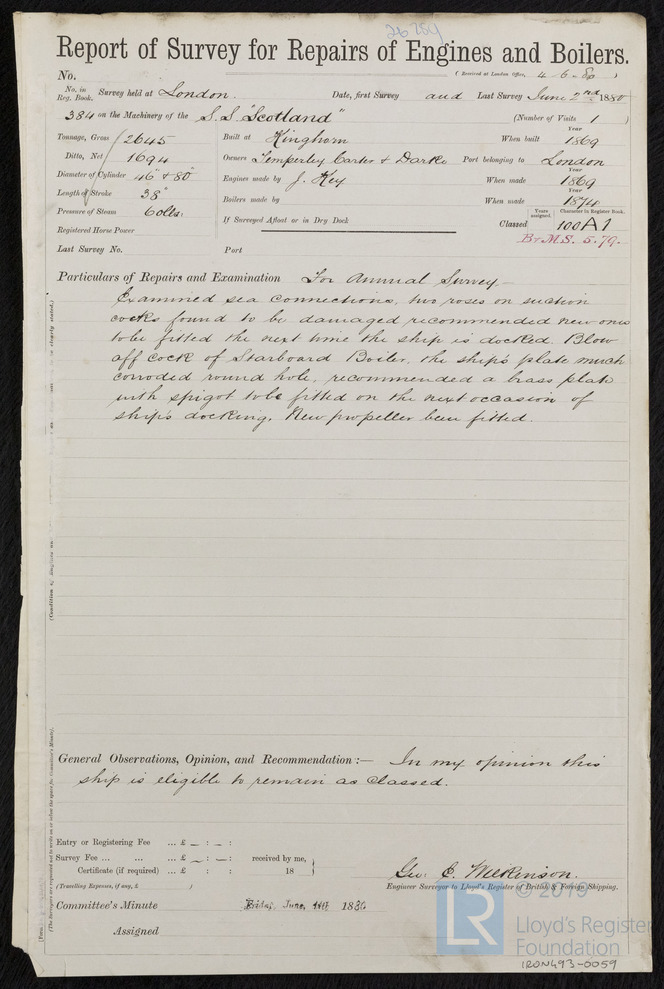 26789
Report of Survey for Repairs of Engines and Boilers.
No. (Received at London Office, 4-6-80)
No. in Reg. Book. Survey held at London. Date, first Survey and Last Survey June 2nd 1880
384 on the Machinery of the S.S. "Scotland" (Number of Visits 1)
Tonnage, Gross 2645 Built at Kinghorn When built Year 1869
Ditto, Net 1694 Owners Temperley Carter & Darke Port belonging to London
Diameter of Cylinder 46" & 80" Engines made by J. Key When made Year 1869
Length of Stroke 38" Boilers made by When made Year 1874
Pressure of Steam 60lbs. If Surveyed Afloat or in Dry Dock Classed Years assigned. Character in Register Book. 100A1
Registered Horse Power B&M.S. 5.79.
Last Survey No. Port
Particulars of Repairs and Examination For Annual Survey.—
Examined sea connections, two roses on suction
cocks found to be damaged recommended new ones
to be fitted the next time the ship is docked. Blow
off cock of Starboard Boiler, the ship's plate much
corroded round hole, recommended a brass plate
with spigot to be fitted on the next occasion of
ship's docking. New propeller been fitted.
General Observations, Opinion, and Recommendation:— In my opinion this
ship is eligible to remain as classed.
Entry or Registering Fee ... £ — : — :
Survey Fee ... ... ... £ — : — : received by me,
Certificate (if required) ... £ : : 18
(Travelling Expenses, if any, £ )
Geo. E. Wilkinson.
Engineer Surveyor to Lloyd's Register of British & Foreign Shipping.
Committee's Minute Friday, June, 1880
Assigned
(The Surveyors are requested not to write on or below the space for Committee's Minute).
© 2019
LR
Lloyd's Register
Foundation
IRON493-0059